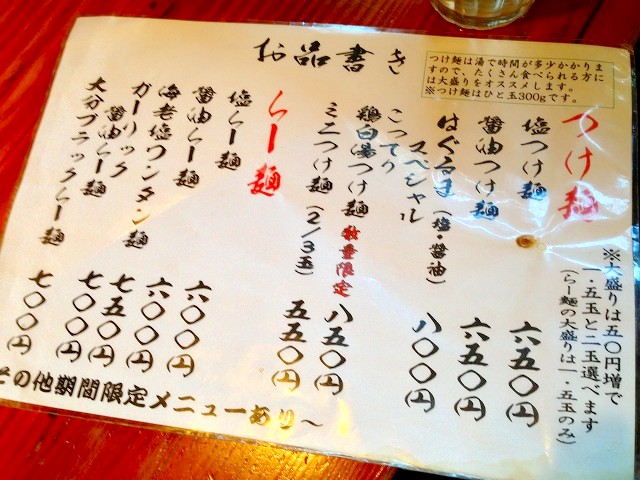 お品書き
つけ麺は湯で時間が多少かかりま
すので、たくさん食べられる方に
は大盛りをオススメします。
※つけ麺はひと玉300gです。
※大盛りは五〇円増で
一・五玉と二玉選べます
(らー麺の大盛りは一・五玉のみ)
つけ麺
塩つけ麺 六五〇円
醤油つけ麺 六五〇円
はぐるま(塩・醤油)
スペシャル 八〇〇円
こってり
鶏白湯つけ麺 数量限定 八五〇円
ミニつけ麺(2/3玉) 五五〇円
らー麺
塩らー麺 六〇〇円
醤油らー麺 六〇〇円
海老塩ワンタン麺 七五〇円
ガーリック
醤油らー麺 七〇〇円
大分ブラックらー麺 七〇〇円
その他期間限定メニューあり～